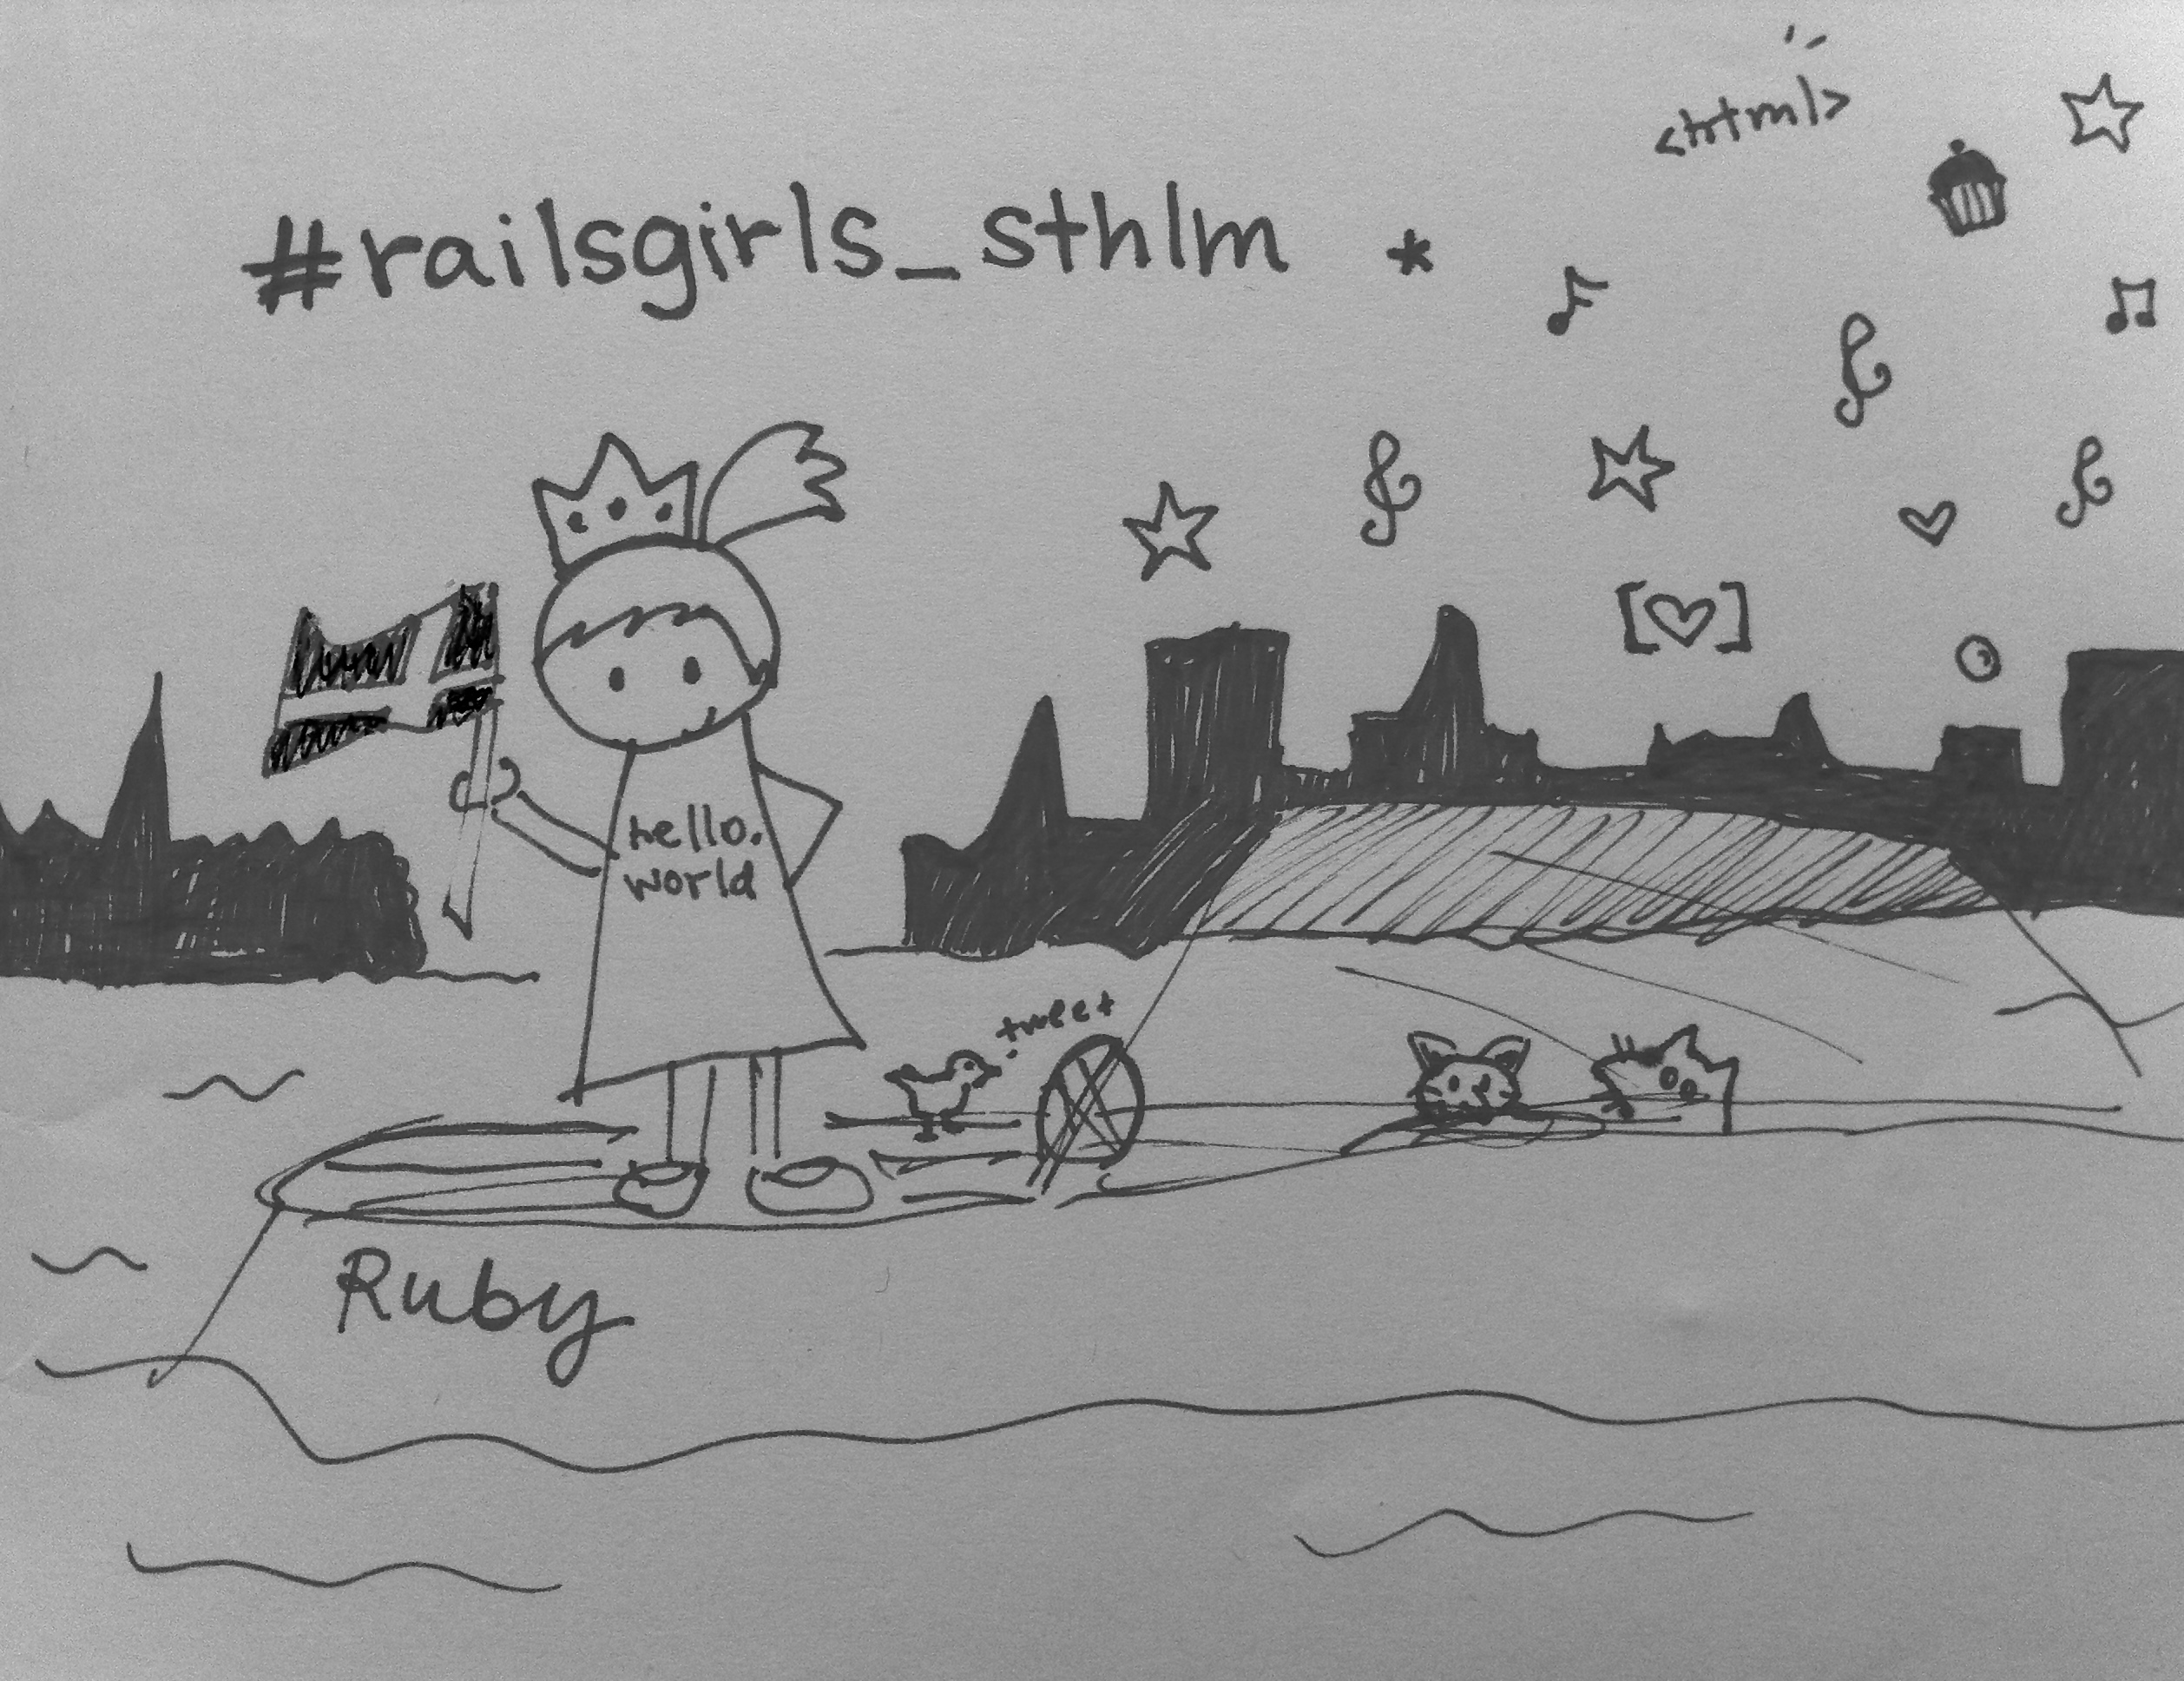 <html>
#railsgirls_sthlm *
hello.
world
tweet
Ruby